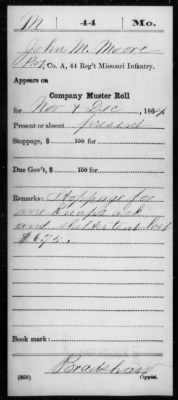 M | 44 | Mo.
John M. Moore
Pvt, Co. A, 44 Reg't Missouri Infantry.
Appears on
Company Muster Roll
for Nov & Dec, 1864.
Present or absent present
Stoppage, $ 100 for
Due Gov't, $ 100 for
Remarks: Stoppage for
one Knapsack
and shelter tent lost
$6.75.
Book mark:
Bradshaw
(858) Copyist.